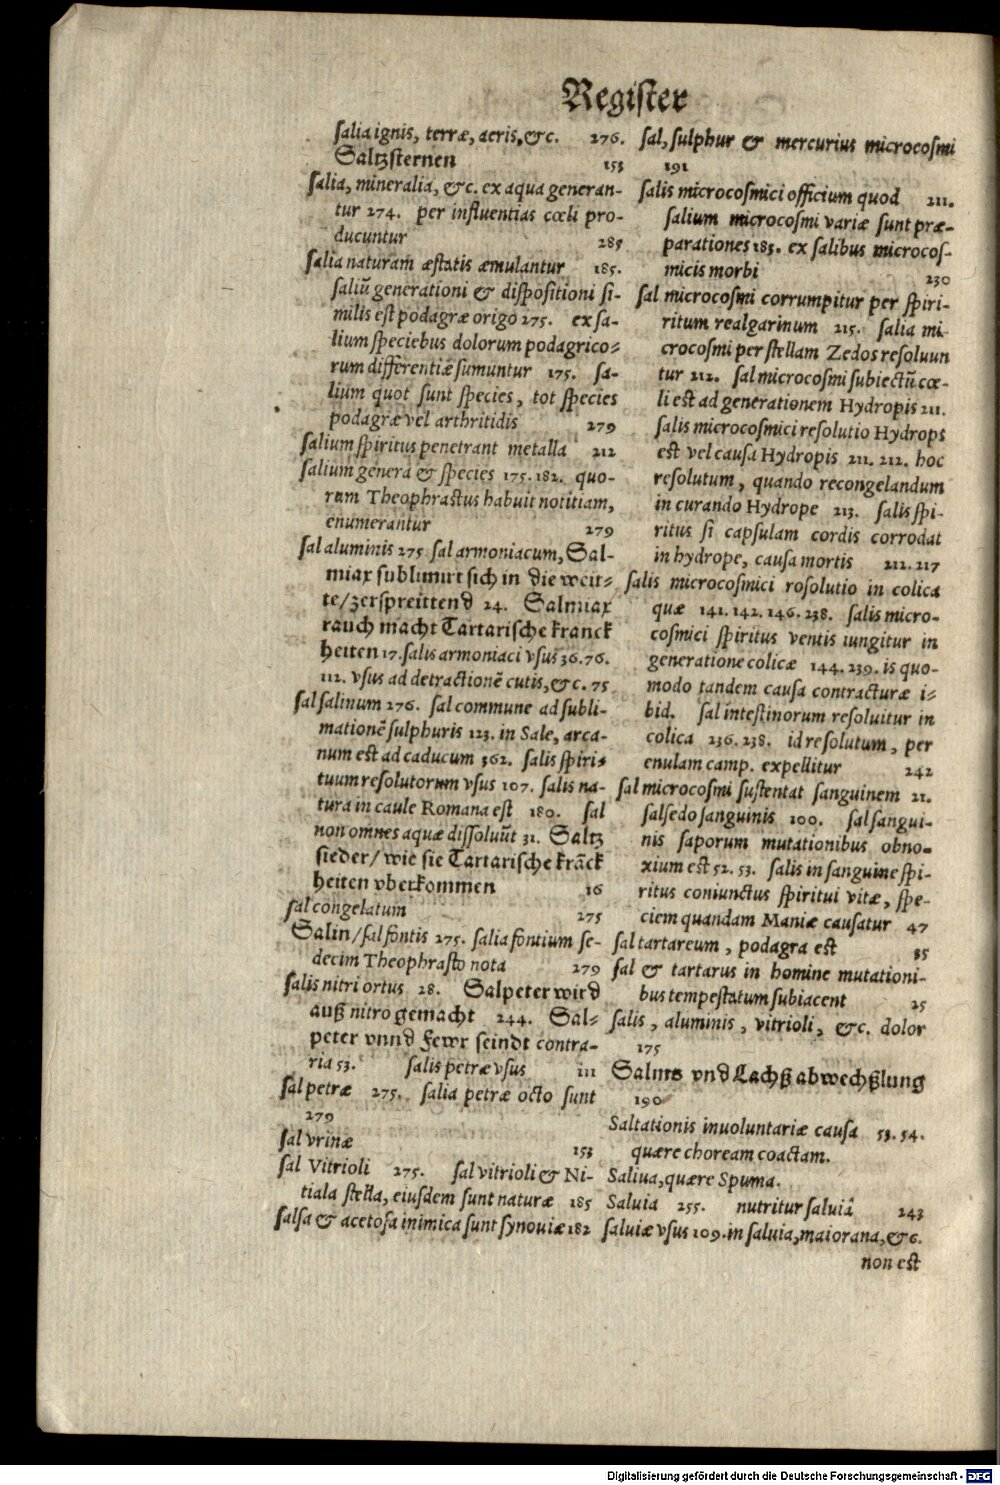 Register
ſalia ignis, terræ, aeris, &c. 276.
Saltzſternen 153
ſalia, mineralia, &c. ex aqua generan-
tur 274. per influentias cœli pro-
ducuntur 285
ſalia naturam æſtatis æmulantur 185.
ſaliū generationi & diſpoſitioni ſi-
milis eſt podagræ origo 275. ex ſa-
lium ſpeciebus dolorum podagrico-
rum differentiæ ſumuntur 175. ſa-
lium quot ſunt ſpecies, tot ſpecies
podagræ vel arthritidis 279
ſalium ſpiritus penetrant metalla 212
ſalium genera & ſpecies 175. 182. quo-
rum Theophraſtus habuit notitiam,
enumerantur 279
ſal aluminis 275 ſal armoniacum, Sal-
miax ſublimirt ſich in die weit-
te/zerſpreittend 24. Salmiax
rauch macht Tartariſche kranck
heiten 17. ſalis armoniaci vſus 36. 76.
112. vſus ad detractionē cutis, &c. 75
ſal ſalinum 276. ſal commune ad ſubli-
mationē ſulphuris 123. in Sale, arca-
num eſt ad caducum 362. ſalis ſpiri-
tuum reſolutorum vſus 107. ſalis na-
tura in caule Romana eſt 180. ſal
non omnes aquæ diſſoluūt 31. Saltz
ſieder/ wie ſie Tartariſche krāck
heiten vberkommen 16
ſal congelatum 275
Salin/ ſal fontis 275. ſalia fontium ſe-
decim Theophraſto nota 279
ſalis nitri ortus 28. Salpeter wird
auß nitro gemacht 244. Sal-
peter vnnd Fewr ſeindt contra-
ria 53. ſalis petræ vſus 111
ſal petræ 275. ſalia petræ octo ſunt
279
ſal vrinæ 153
ſal Vitrioli 275. ſal vitrioli & Ni-
tiala ſtella, eiuſdem ſunt naturæ 185
ſalſa & acetoſa inimica ſunt ſynouiæ 182
ſal, ſulphur & mercurius microcoſmi
191
ſalis microcoſmici officium quod 211.
ſalium microcoſmi variæ ſunt præ-
parationes 183. ex ſalibus microcoſ-
micis morbi 230
ſal microcoſmi corrumpitur per ſpiri-
ritum realgarinum 215. ſalia mi-
crocoſmi per ſtellam Zedos reſoluun
tur 212. ſal microcoſmi ſubiectū cœ-
li eſt ad generationem Hydropis 211.
ſalis microcoſmici reſolutio Hydrops
eſt vel cauſa Hydropis 211. 212. hoc
reſolutum, quando recongelandum
in curando Hydrope 213. ſalis ſpi-
ritus ſi capſulam cordis corrodat
in hydrope, cauſa mortis 212. 217
ſalis microcoſmici roſolutio in colica
quæ 141. 142. 146. 238. ſalis micro-
coſmici ſpiritus ventis iungitur in
generatione colicæ 144. 239. is quo-
modo tandem cauſa contracturæ i-
bid. ſal inteſtinorum reſoluitur in
colica 236. 238. id reſolutum, per
enulam camp. expellitur 242
ſal microcoſmi ſuſtentat ſanguinem 21.
ſalſedo ſanguinis 100. ſal ſangui-
nis ſaporum mutationibus obno-
xium eſt 52. 53. ſalis in ſanguine ſpi-
ritus coniunctus ſpiritui vitæ, ſpe-
ciem quandam Maniæ cauſatur 47
ſal tartareum, podagra eſt 85
ſal & tartarus in homine mutationi-
bus tempeſtatum ſubiacent 25
ſalis, aluminis, vitrioli, &c. dolor
175
Salms vnd Lachß abwechßlung
190
Saltationis inuoluntariæ cauſa 53. 54.
quære choream coactam.
Saliua, quære Spuma.
Saluia 255. nutritur ſaluiâ 243
ſaluiæ vſus 109. in ſaluia, maiorana, &c.
non eſt
Digitalisierung gefördert durch die Deutsche Forschungsgemeinschaft - DFG